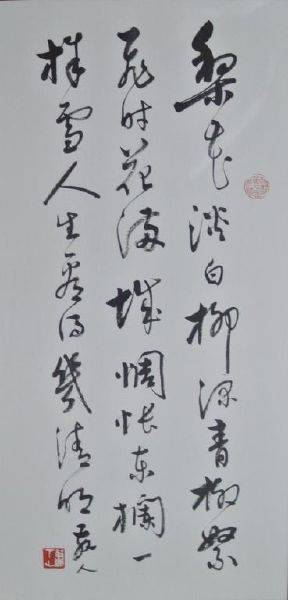 梨花淡白柳深青柳絮
飛时花满城惆怅东欄一
株雪人生看得几清明